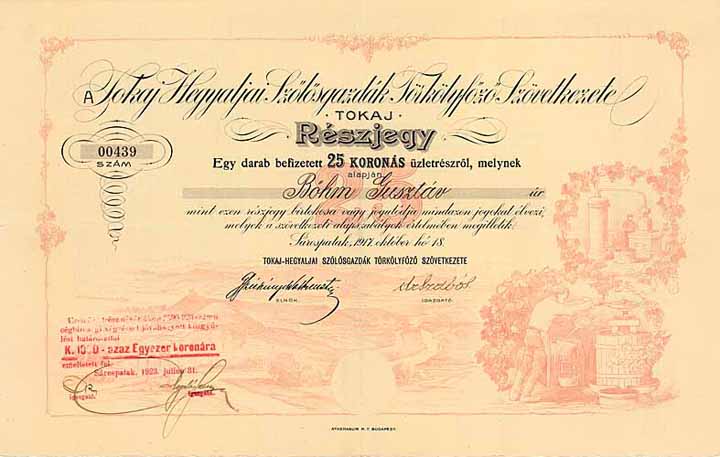 A Tokaj-Hegyaljai Szőlősgazdák Törkölyfőző Szövetkezete
· TOKAJ ·
Részjegy
00439
SZÁM
Egy darab befizetett 25 KORONÁS üzletrészről, melynek
alapján
25
Böhm Gusztáv úr
mint ezen részjegy birtokosa vagy jogutódja mindazon jogokat élvezi,
melyek a szövetkezeti alapszabályok értelmében megilletik.
Sárospatak, 1917. október hó 18.
TOKAJ-HEGYALJAI SZŐLŐSGAZDÁK TÖRKÖLYFŐZŐ SZÖVETKEZETE
ELNÖK. IGAZGATÓ.
jóváhagyott
határozattal
K. - azaz Egyezer koronára
Sárospatak, 1923. július 31.
igazgató. igazgató.
ATHENAEUM R. T. BUDAPEST.